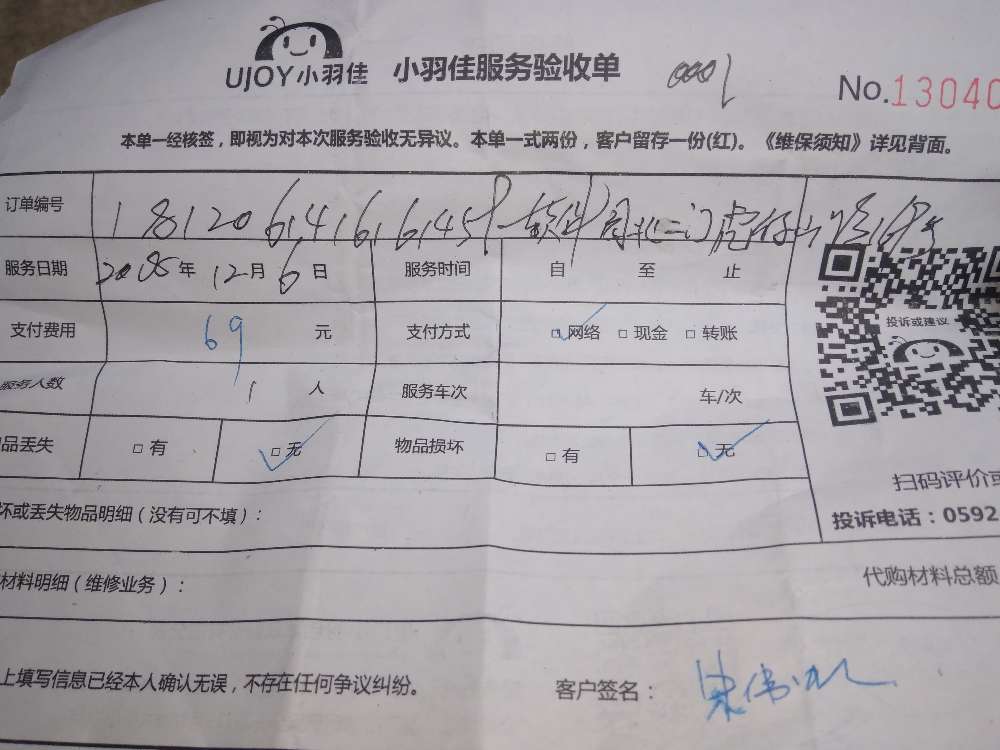 UJOY小羽佳 小羽佳服务验收单 0001 No.13040
本单一经核签，即视为对本次服务验收无异议。本单一式两份，客户留存一份(红)。《维保须知》详见背面。
订单编号 181206416645
服务日期 年 12月 6日 服务时间 自 至 止
投诉或建议
支付费用 69 元 支付方式 □网络 □现金 □转账
服务人数 1 人 服务车次 车/次
品丢失 □有 □无 物品损坏 □有 □无
扫码评价或
坏或丢失物品明细（没有可不填）： 投诉电话：0592
材料明细（维修业务）： 代购材料总额
上填写信息已经本人确认无误，不存在任何争议纠纷。 客户签名：